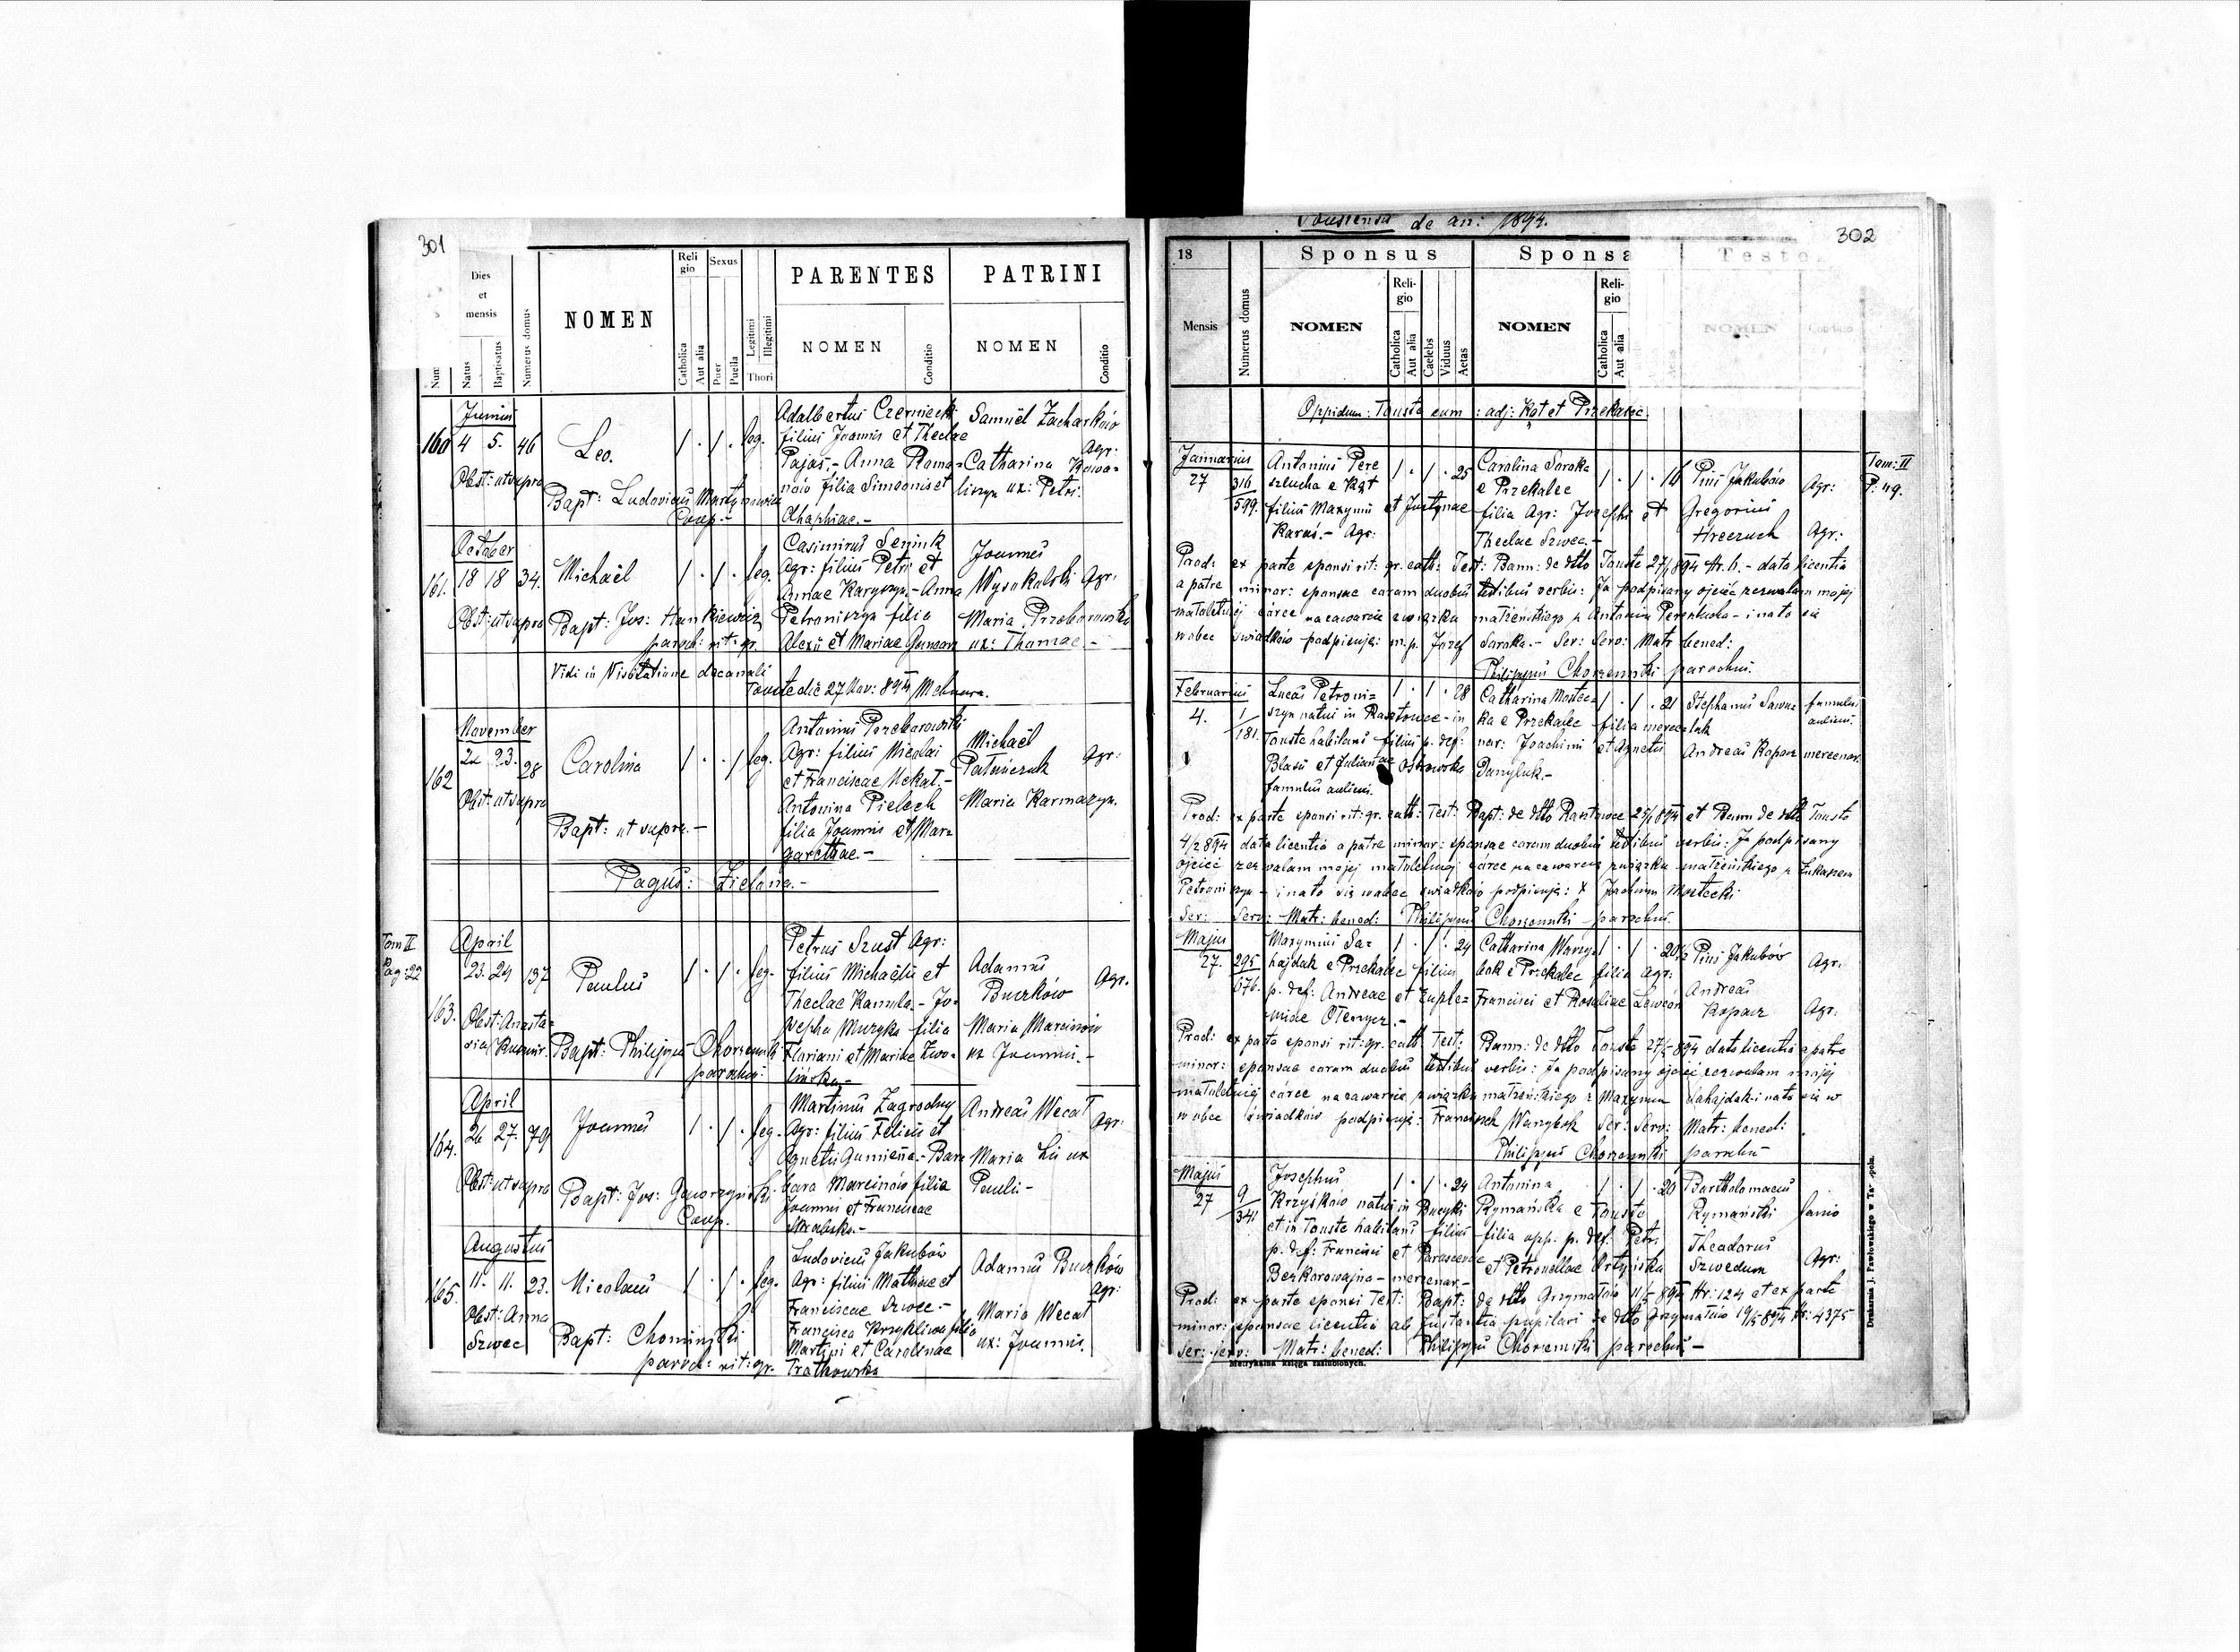 301
Num
Dies
et
mensis
Natus
Baptisatus
Numerus domus
NOMEN
Reli
gio
Catholica
Aut alia
Sexus
Puer
Puella
Legitimi
Illegitimi
Thori
PARENTES
NOMEN
Conditio
PATRINI
NOMEN
Conditio
Junius
160 4 5. 46 Leo. 1 . 1 . leg.
Obst: ut supra
Bapt: Ludovicus Martynowicz
Coop.-
Adalbertus Czerniecki
filius Joannis et Theclae
Pajas.- Anna Roma=
nów filia Simeonis et
Ahaphiae.-
Samuël Zacharków
Agr:
Catharina Kowa=
liszyn ux: Petri.
October
161. 18 18 34. Michaël 1 . 1 . leg.
Obst: ut supra
Bapt: Jos: Hankiewicz
paroch: rit: gr.
Casimirus Seniuk
Agr: filius Petri et
Annae Karyszyn.- Anna
Petroniszyn filia
Alexii et Mariae
Joannes
Wysokolski Agr:
Maria Przeborowska
ux: Thomae.-
Vidi in Visitatione decanali
Touste die 27 Nov: 894
November
162 22 23. 28 Carolina 1 . . 1 leg.
Obst: ut supra
Bapt: ut supra.-
Antonius Przeborowski
Agr: filius Nicolai
et Franciscae Uckat.-
Antonina Pielech
filia Joannis et Mar=
garethae.-
Michaël
Palniczuk Agr:
Maria Karmazyn.
Pagus: Zielona.-
Tom II
Pag: 22
April
163. 23. 24 137 Paulus 1 . 1 . leg.
Obst: Anasta=
sia
Bapt: Philippus Chorzemski
parochus
Petrus Szust Agr:
filius Michaëlis et
Theclae Kamula.- Jo=
sepha Muzyka filia
Floriani et Mariae Zwo=
lińska.-
Adamus
Buczków Agr.
Maria Marcinów
ux Joannis.-
April
164. 26 27. 79 Joannes 1 . 1 . leg.
Obst: ut supra
Bapt: Jos: Gaworzyński
Coop.
Martinus Zagrodny
Agr: filius Felicis et
Agnetis Gumienna.- Bar=
bara Marcinów filia
Joannis et Franciscae
Skalska.-
Andreas Wecal Agr:
Maria Lis ux
Pauli-
Augustus
165. 11. 11. 23. Nicolaus 1 . 1 . leg.
Obst: Anna
Szwec
Bapt: Chominski
paroch: rit: gr.
Ludovicus Jakubów
Agr: filius Mathiae et
Franciscae Szwec.-
Francisca Krzykliwa filia
Martini et Carolinae
Tratkowska
Adamus Buczków
Agr:
Maria Wecal
ux: Joannis.
Toustensia de an: 1894.
302
18
Mensis
Numerus domus
Sponsus
NOMEN
Reli-
gio
Catholica
Aut alia
Caelebs
Viduus
Aetas
Sponsa
NOMEN
Reli-
gio
Catholica
Aut alia
Testes
NOMEN
Conditio
Oppidum: Touste cum : adj: Kąt et Przekalec.
Tom: II
P. 49.
Januarius
27 316
599.
Antonius Pere
szlucha e Kąt
filius Maxymi et Justynae
Karaś.- Agr:
1 . 1 . 25
Carolina Soroka
e Przekalec
filia Agr: Josephi et
Theclae Szwec.-
1 . 1 . 16
Pius Jakubów Agr:
Gregorius
Hreczuch Agr:
Prod: ex parte sponsi rit: gr. cath: Test: Bann: de dtto Touste 27/1 894 Nr. 6.- data licentia
a patre minor: sponsae coram duobus testibus verbis: Ja podpisany ojciec zezwalam mojej
małoletniej córce na zawarcie związku małżeńskiego z Antonim Pereszlucha- i na to się
wobec świadków podpisuję: m.p. Józef Soroka.- Ser: Serv: Matr: bened:
Philippus Chorzemski parochus.
Februarius
4. 1
181.
Lucas Petroni=
szyn natus in Rasztowce- in
Touste habitans filius p. def:
Blasii et Julianae Ostrowska
famulus aulicus.
1 . 1 . 28
Catharina Mostec=
ka e Przekalec filia merce=
nar: Joachimi et Agnetis
Danyluk.-
1 . 1 . 21
Stephanus Sawu=
luk
famulus
aulicus.
Andreas Kopacz mercenar.
Prod: ex parte sponsi rit: gr. cath: Test: Bapt: de dtto Rasztowce 25/1 894 et Bann de dtto Touste
4/2 894 data licentia a patre minor: sponsae coram duobus testibus verbis: Ja podpisany
ojciec zezwalam mojej małoletniej córce na zawarcie związku małżeńskiego z Łukaszem
Petroniszyn- i na to się wobec świadków podpisuję: X Joachim Mostecki
Ser: Serv: Matr: bened: Philippus Chorzemski parochus.
Majus
27. 295
676.
Maxymus Sa=
hajdak e Przekalec filius
p. def: Andreae et Euphe=
miae Olenycz.-
1 . 1 . 24
Catharina Warzy=
bok e Przekalec filia Agr:
Francisci et Rosaliae Lewcón
1 . 1 . 20½
Pius Jakubów Agr:
Andreas
Kopacz Agr:
Prod: ex parte sponsi rit: gr. cath: Test: Bann: de dtto Touste 27/5 894 data licentia a patre
minor: sponsae coram duobus testibus verbis: Ja podpisany ojciec zezwalam mojej
małoletniej córce na zawarcie związku małżeńskiego z Maxymem Sahajdak- i na to się w
wobec świadków podpisuję: Franciszek Warzybok Ser: Serv: Matr: bened:
Philippus Chorzemski parochus-
Majus
27 9
341
Josephus
Krzyśków natus in Bucyki
et in Touste habitans filius
p. def: Francisci et Parascevae
Bezkorowajna- mercenar.-
1 . 1 . 24
Antonina
Rymańska e Touste
filia opp. p. def. Petri
et Petronellae Ortyńska
1 . 1 . 20
Bartholomaeus
Rymański lanio
Theodorus
Szwedum Agr:
Prod: ex parte sponsi Test: Bapt: de dtto Grzymałów 11/5 894 Nr: 124 et ex parte
minor: sponsae licentia ab Instantia pupilari de dtto Grzymałów 19/5 894 Nr: 4375
Ser: Serv: Matr: bened: Philippus Chorzemski parochus-
Metrykalna księga zaślubionych.
Drukarnia J. Pawłowskiego w Tarnopolu.